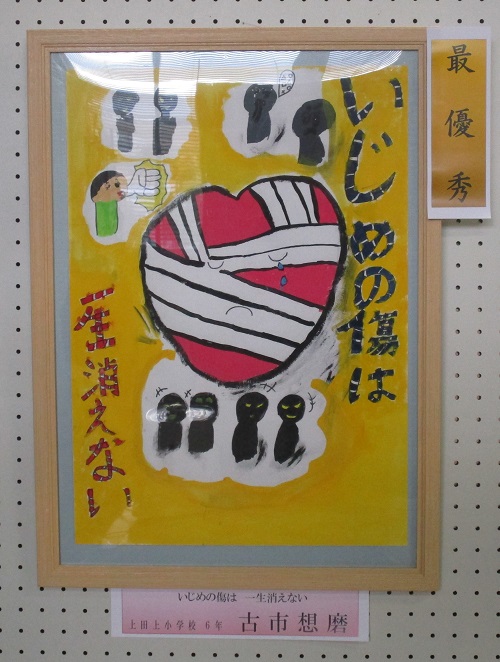 最優秀
いじめの傷は
一生消えない
いじめの傷は 一生消えない
上田上小学校 6年 古市想磨